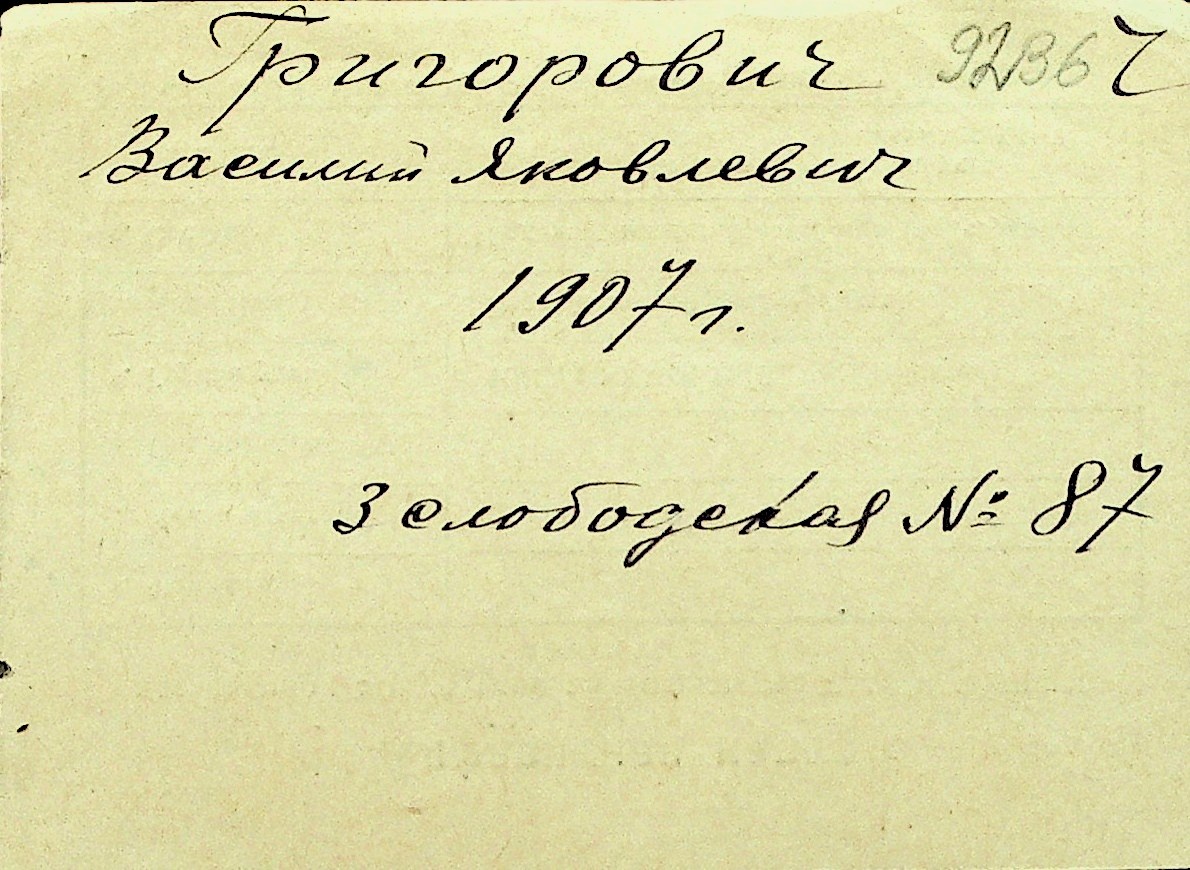 Григорович 9236 Ч
Василий Яковлевич
1907 г.
3 слободская № 87